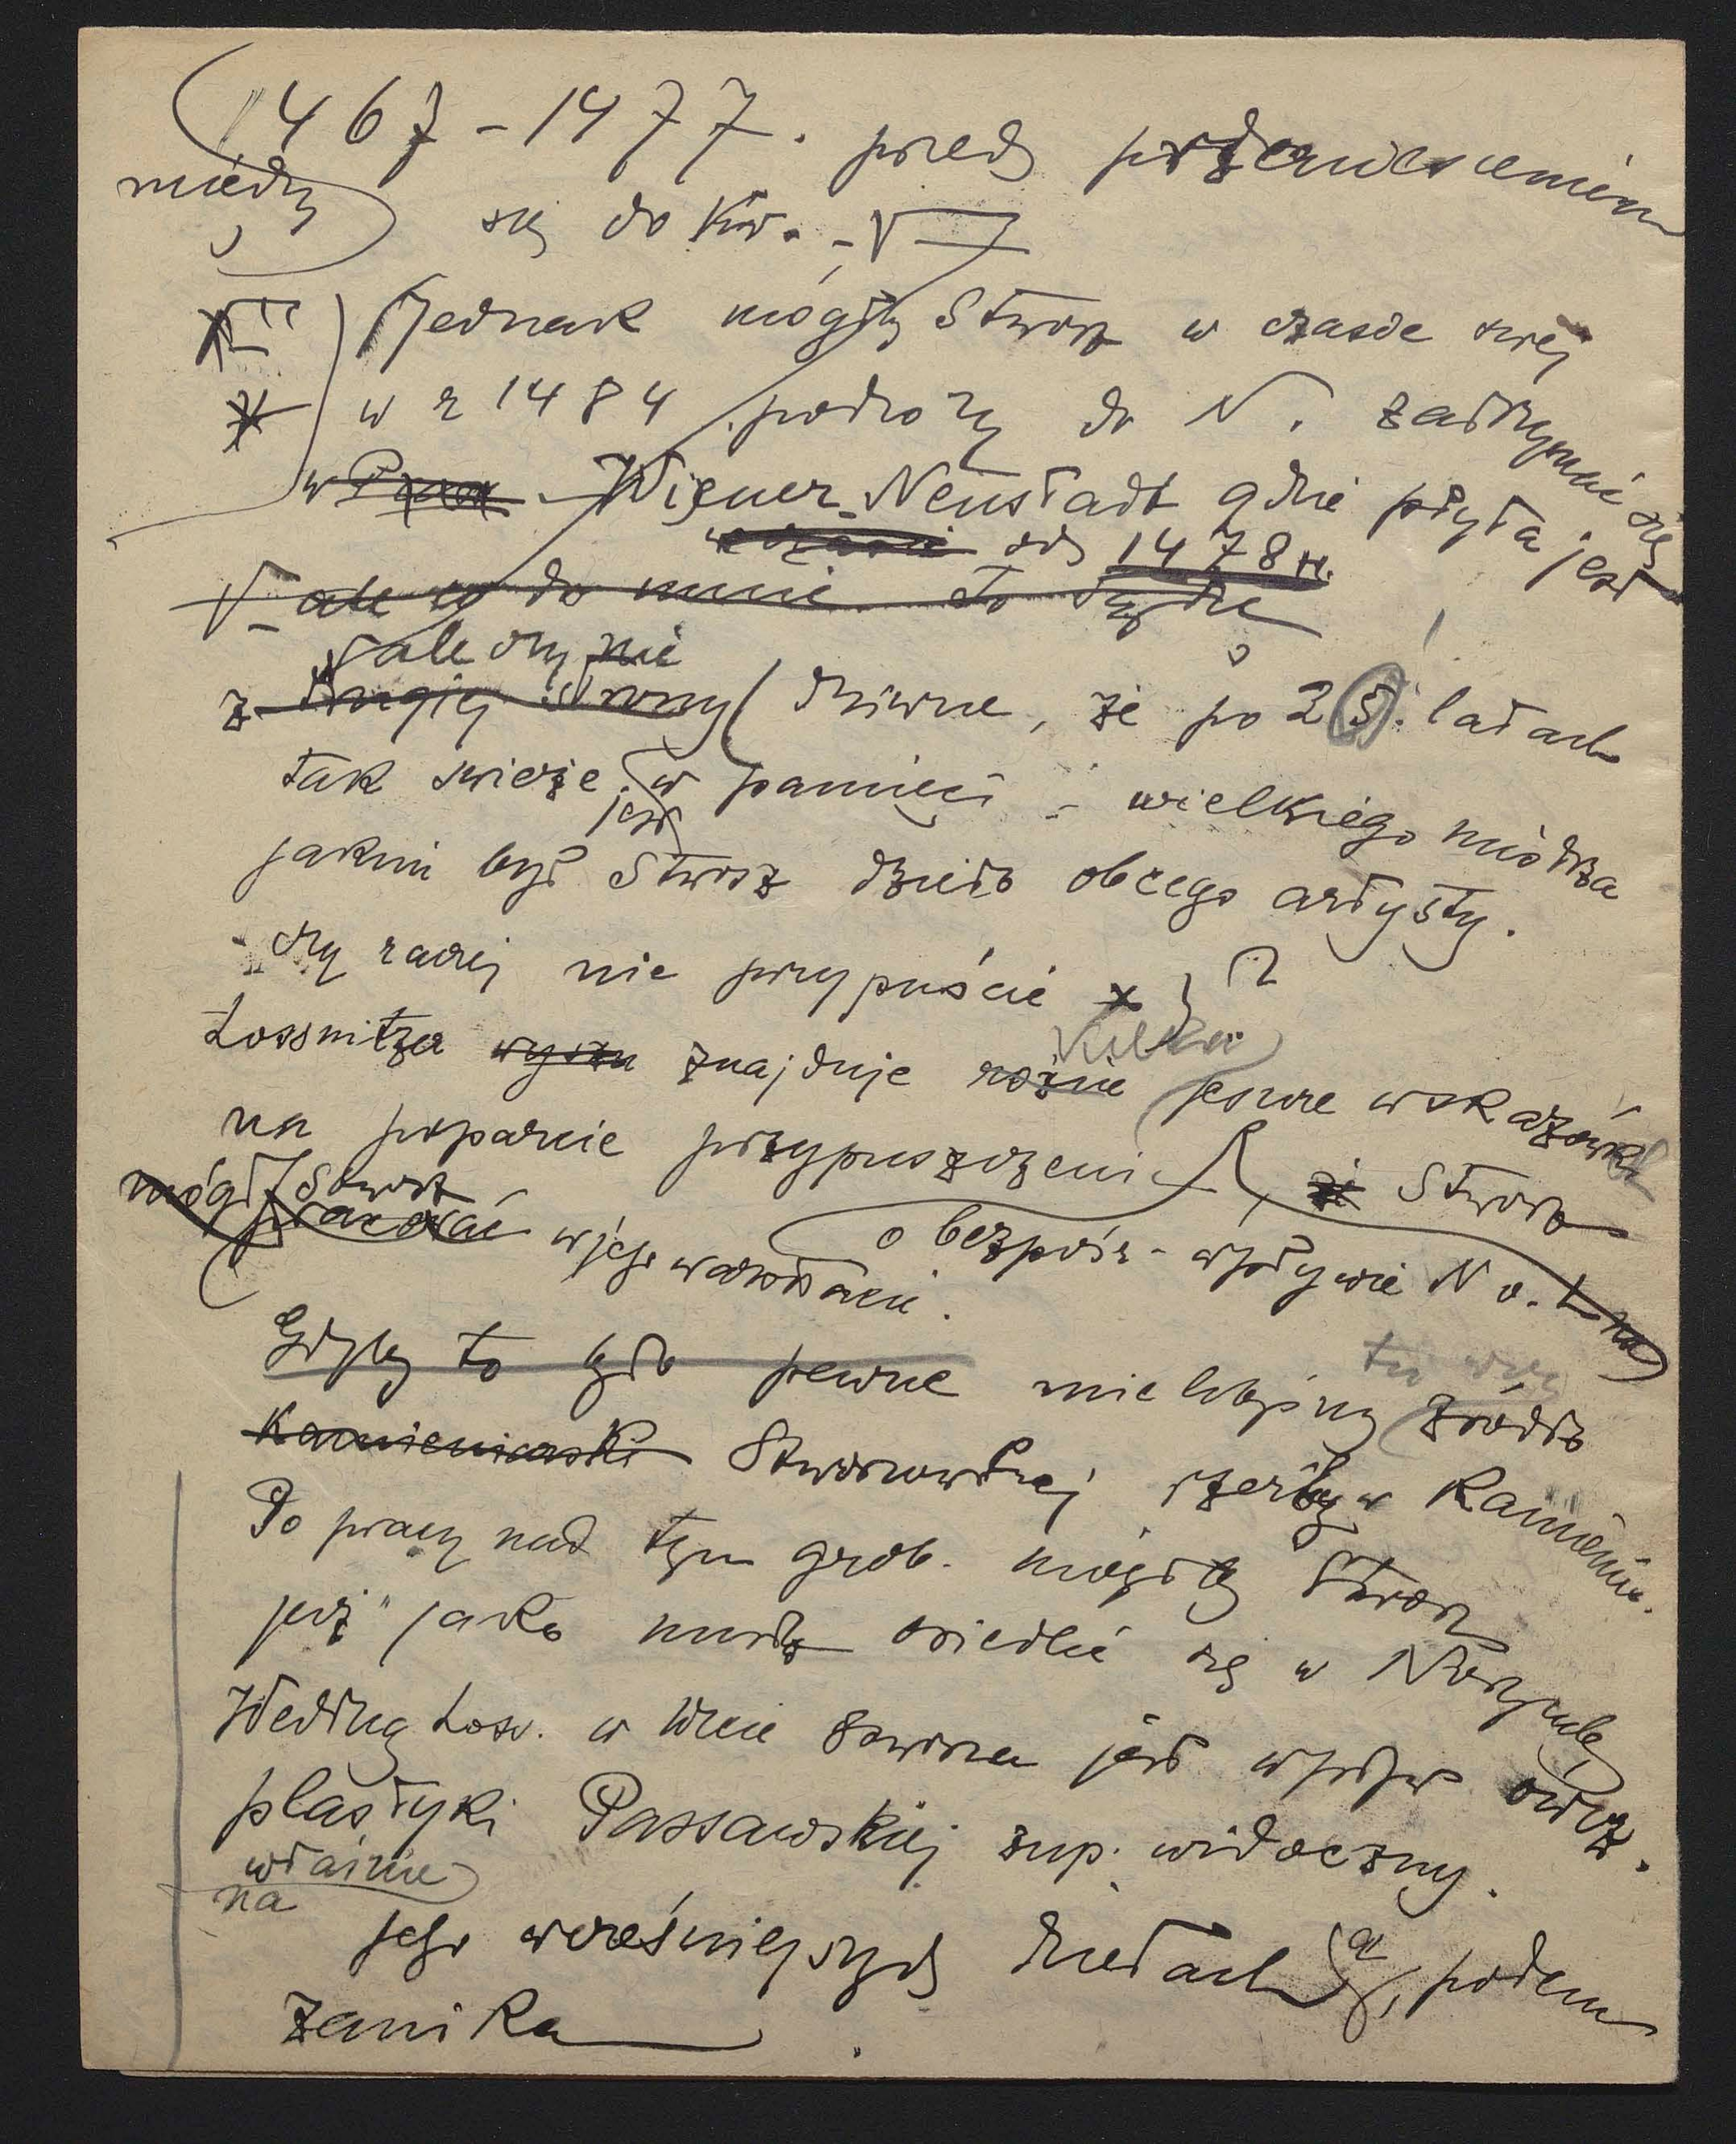 1467-1477. przed przeniesieniem
między
się do Kr. -
Jednak mógłby Stwosz w czasie swej
w r 1484 podróży do N. zatrzymać się
w Wiener-Neustadt gdzie płyta jest
od 1478 r.
ale co do mnie to sądzę
ale czy nie
z drugiej strony dziwne, że po 25. latach
tak świeże jest w pamięci - wielkiego mistrza
jakim był Stwosz dzieło obcego artysty.
- czy raczej nie przypuścić x ?
kilka
Lossnitzer znajduje różne jeszcze wskazówek
na poparcie przypuszczeni że Stwosz
mógł Stwosz
pracować w jego warsztacie.
o bezpośr. wpływie N v. L na
Gdyby to było pewne mielibyśmy tu źródło
Kamieniarski Stwoszowskiej rzeźby w kamieniu.
Po pracy nad tym grob. mógłby Stwosz
już jako mistrz osiedlić się w Norymb.
Według Loss. w Wicie Stwoszu jest wpływ ówcz.
plastyki Passawskiej zup. widoczny.
właśnie
na
jego wcześniejszych dziełach, a potem
zanika